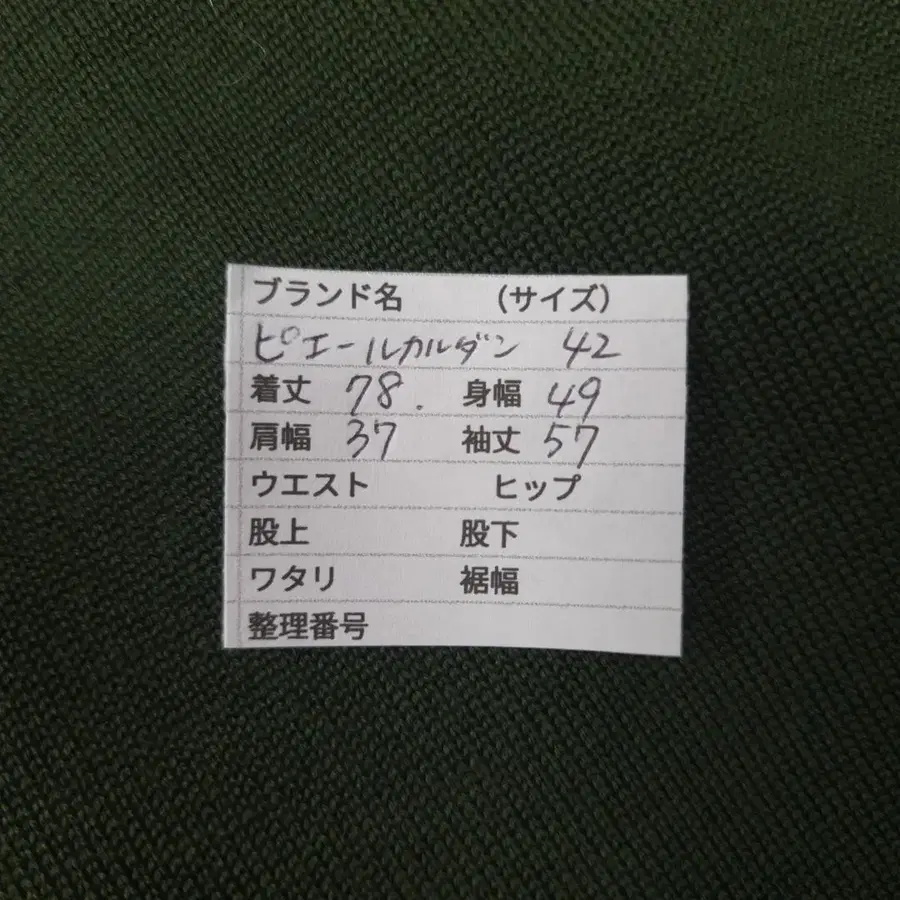 ブランド名 (サイズ)
ピエールカルダン 42
着丈 78. 身幅 49
肩幅 37 袖丈 57
ウエスト ヒップ
股上 股下
ワタリ 裾幅
整理番号